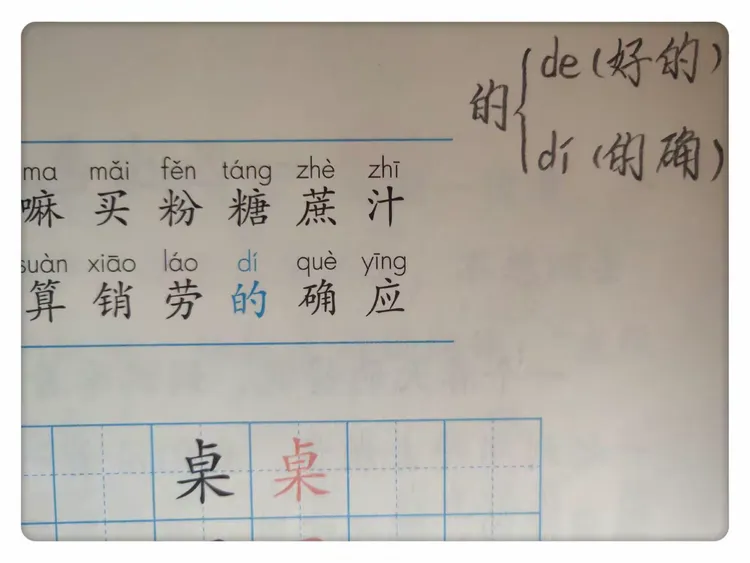 的{de(好的)
dí(的确)
ma mǎi fěn táng zhè zhī
嘛 买 粉 糖 蔗 汁
suàn xiāo láo dí què yīng
算 销 劳 的 确 应
桌 桌